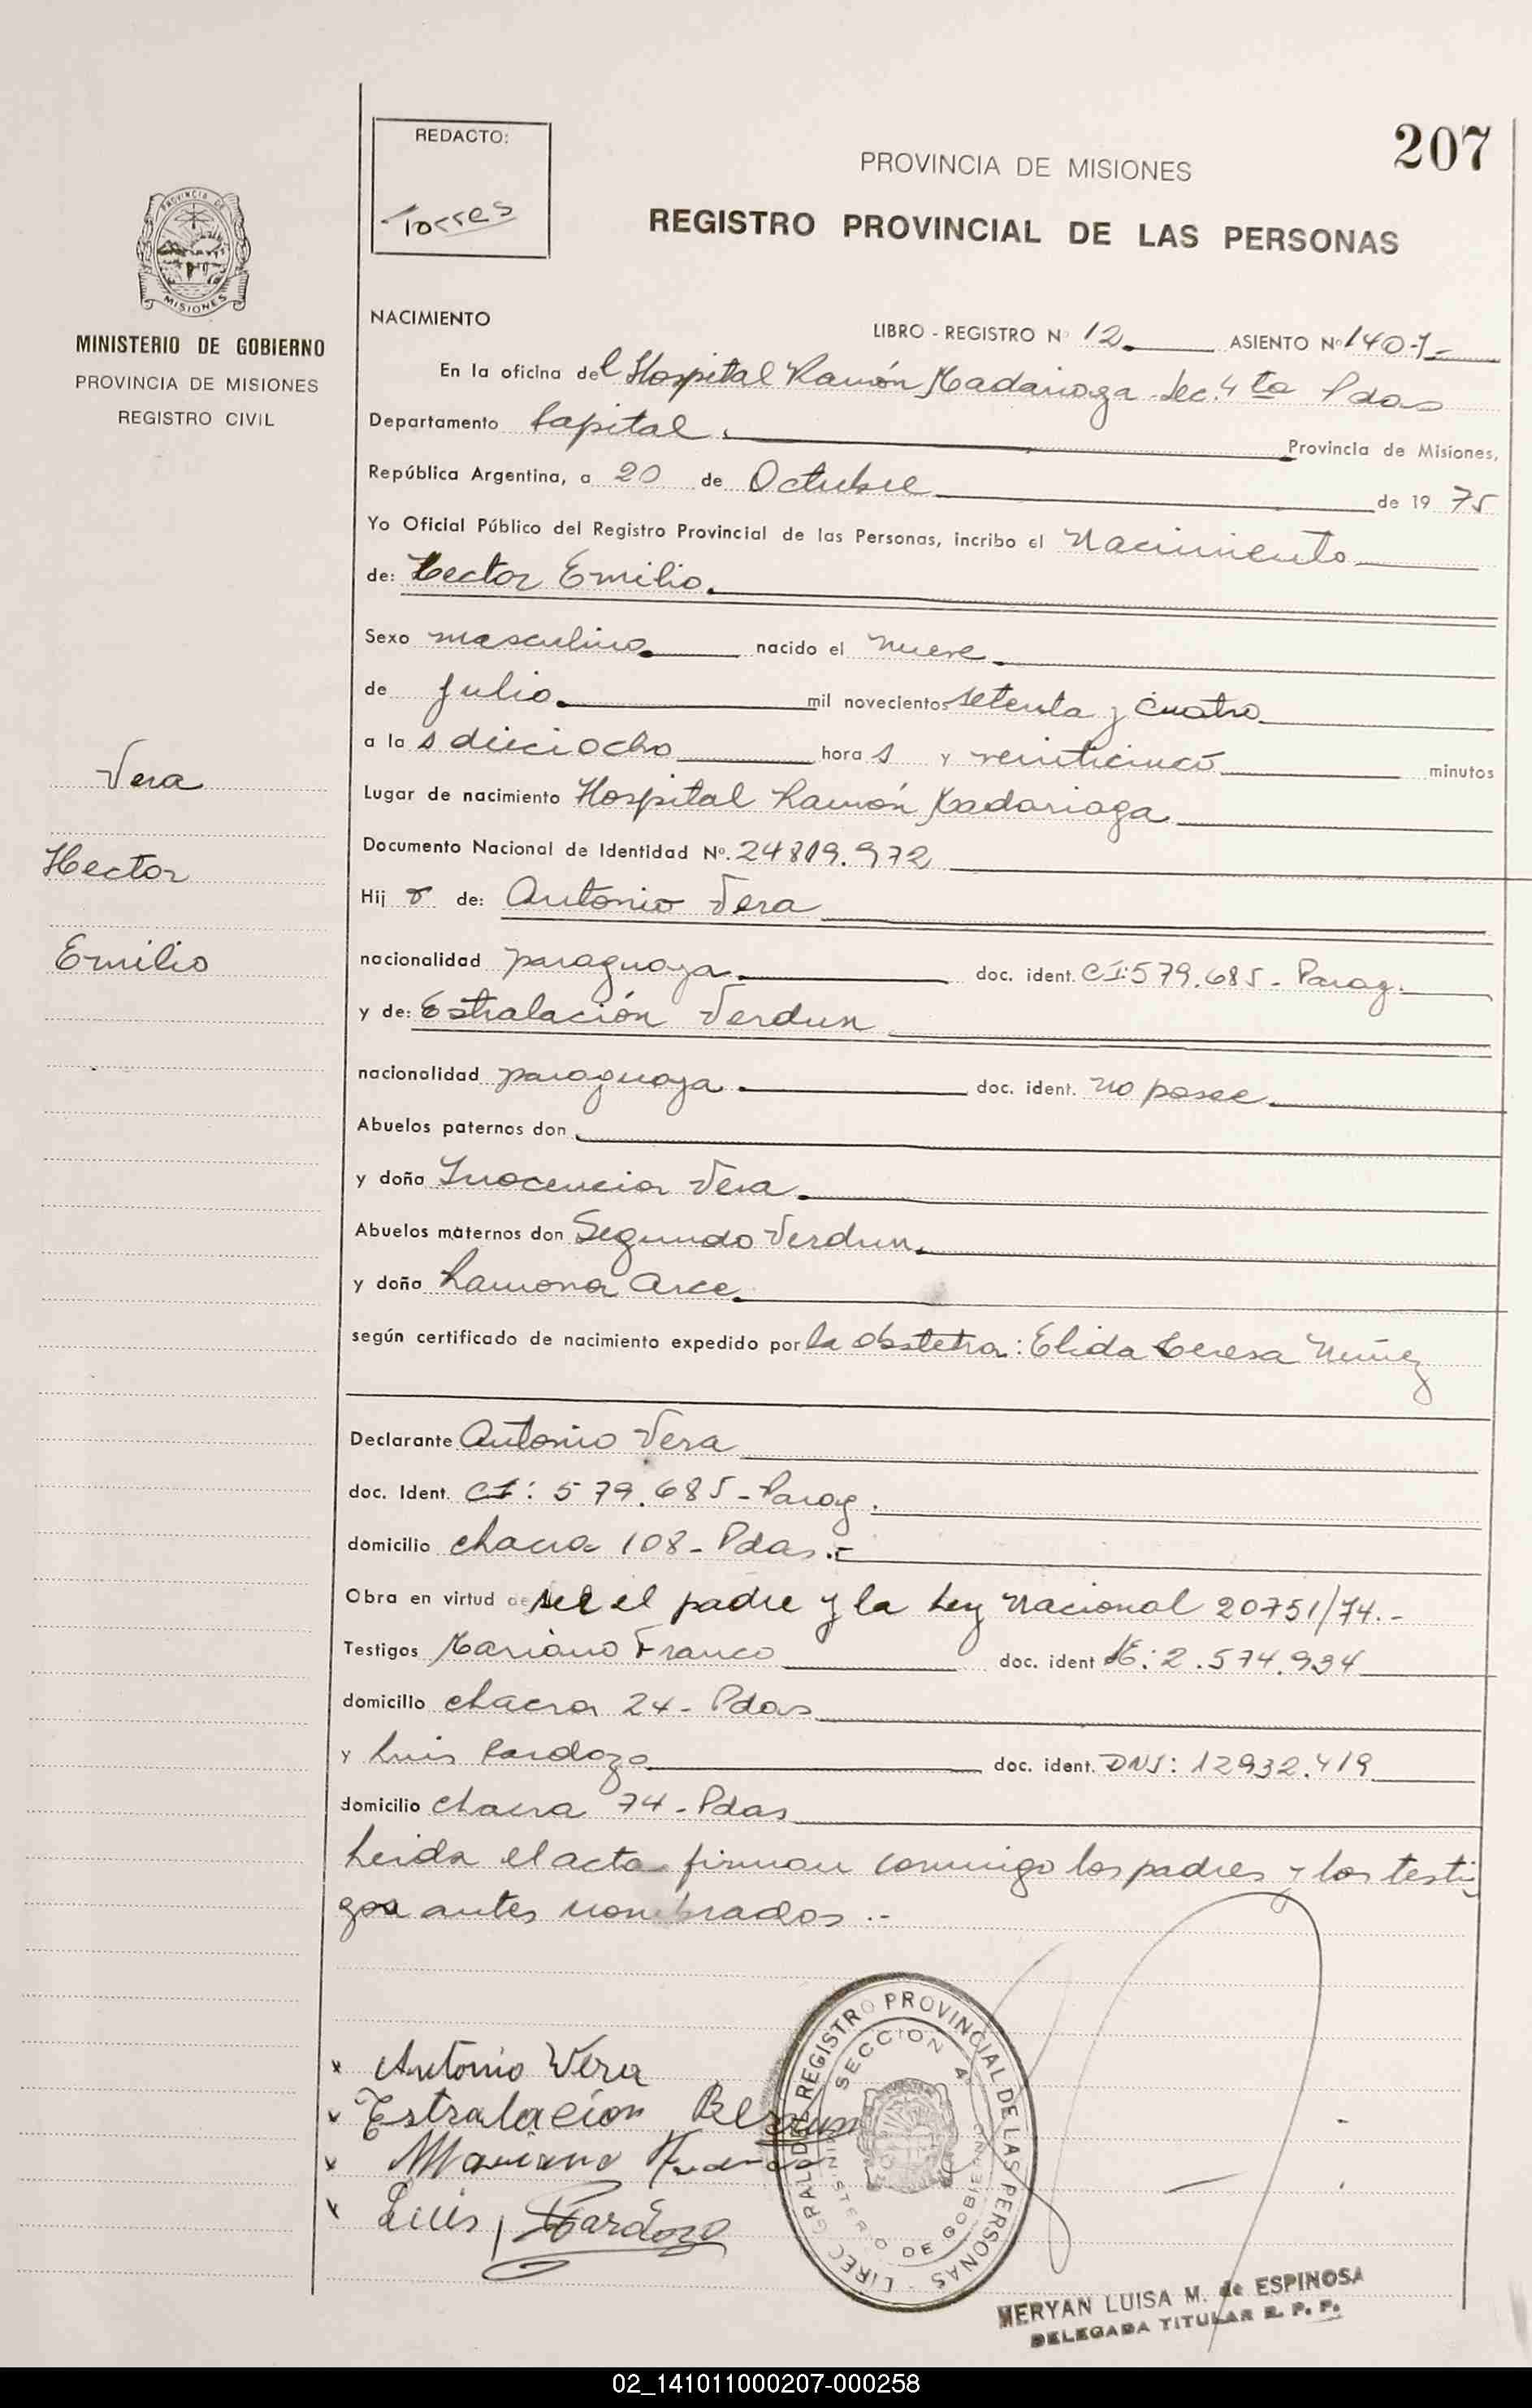 207
REDACTO:
Torres
PROVINCIA DE MISIONES
REGISTRO PROVINCIAL DE LAS PERSONAS
PROVINCIA DE
MISIONES
MINISTERIO DE GOBIERNO
PROVINCIA DE MISIONES
REGISTRO CIVIL
NACIMIENTO
LIBRO - REGISTRO Nº 12 ASIENTO Nº 1407-
En la oficina del Hospital Ramón Madariaga Sec. 4ta Pdas
Departamento Capital. Provincia de Misiones,
República Argentina, a 20 de Octubre de 1975
Yo Oficial Público del Registro Provincial de las Personas, incribo el Nacimiento
de: Hector Emilio.
Sexo masculino. nacido el nueve.
de julio. mil novecientos setenta y cuatro
a las dieciocho horas y veinticinco minutos
Lugar de nacimiento Hospital Ramón Madariaga
Documento Nacional de Identidad Nº. 24819.972
Hijo de: Antonio Vera
nacionalidad paraguaya. doc. ident. CI:579.685- Parag.
y de: Estralación Verdun
nacionalidad paraguaya. doc. ident. no posee.
Abuelos paternos don
y doña Inocencia Vera.
Abuelos maternos don Segundo Verdun.
y doña Ramona Arce.
según certificado de nacimiento expedido por la obstetra: Elida Teresa Nuñez
Declarante Antonio Vera
doc. Ident. CI: 579.685-Parag.
domicilio chacra 108- Pdas.-
Obra en virtud de ser el padre y la Ley Nacional 20751/74.-
Testigos Mariano Franco doc. ident LE: 2.574.934
domicilio chacra 24- Pdas
y Luis Cardozo doc. ident. DNI: 12932.419
domicilio chacra 74- Pdas
Leida el acta firman conmigo los padres y los testi
gos antes nombrados.-
Vera
Hector
Emilio
x Antonio Vera
x Estralacion
x Mariano
x Luis Cardozo
REGISTRO PROVINCIAL DE LAS PERSONAS
SECCION 4
MINISTERIO DE GOBIERNO
MERYAN LUISA M. de ESPINOSA
DELEGADA TITULAR R. P. P.
02_141011000207-000258